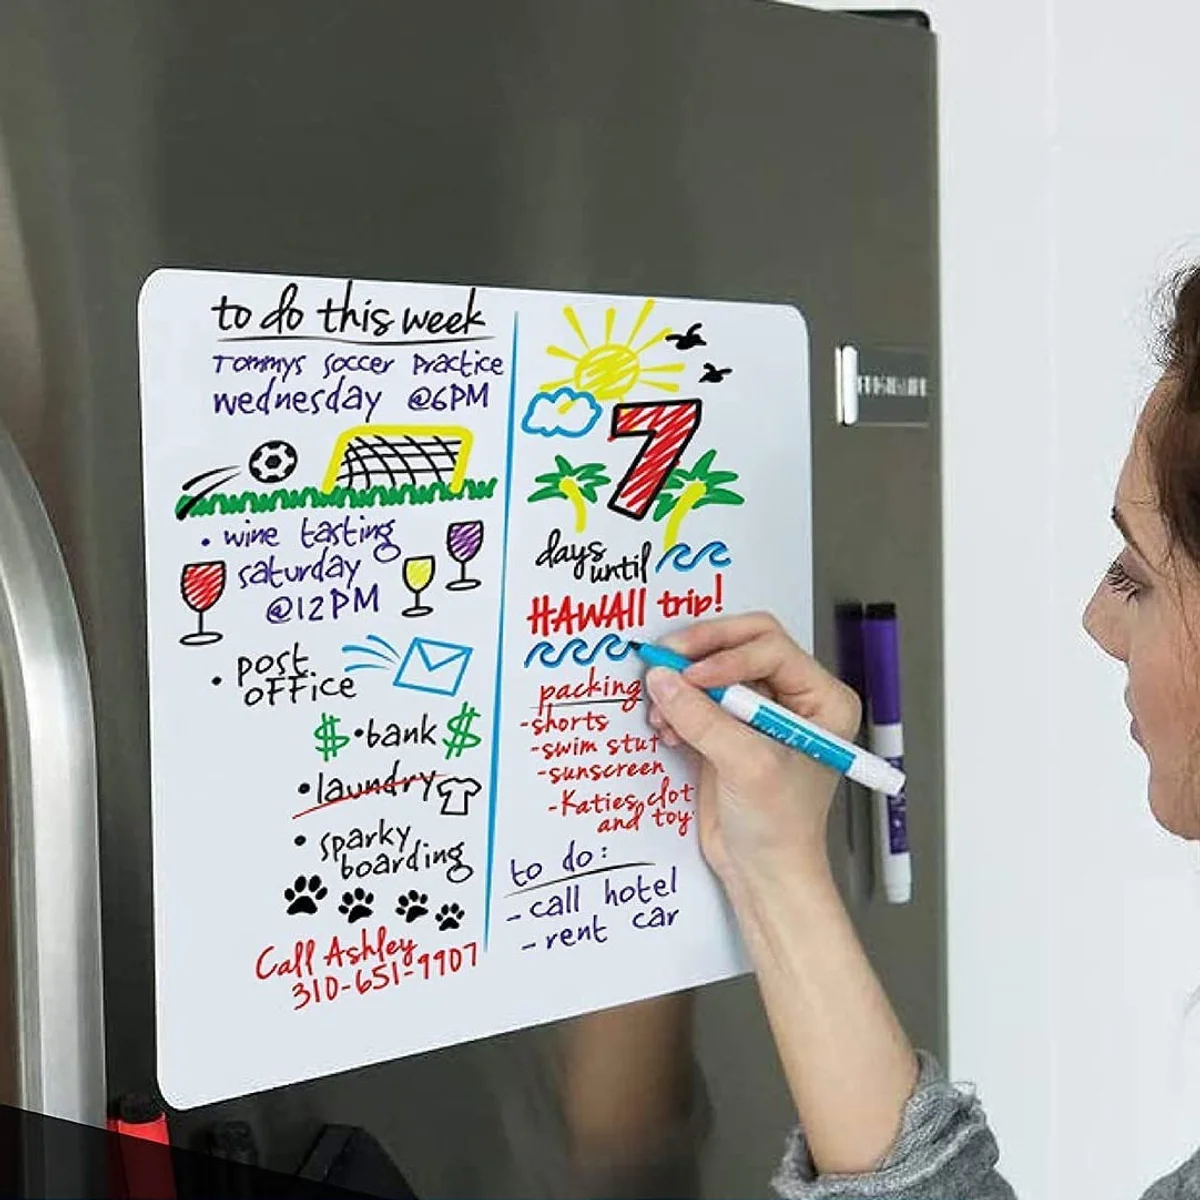 to do this week
Tommys soccer practice
wednesday @6PM
• wine tasting
saturday
@12PM
• post
office
$ • bank $
• laundry
• sparky
boarding
Call Ashley
310-651-9907
7
days until
HAWAII trip!
packing
-shorts
-swim
-sunscreen
-Katies
and
to do:
- call hotel
- rent car